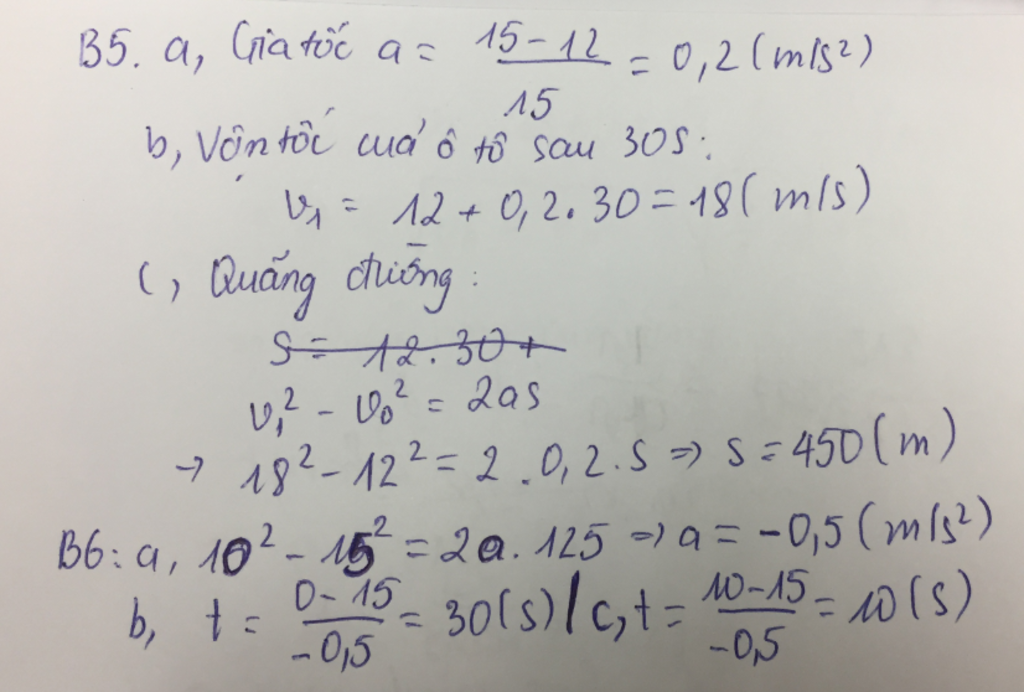 B5. a, Gia tốc a = 15 - 12 / 15 = 0,2 (m/s²)
b, Vận tốc cuả ô tô sau 30s:
v₁ = 12 + 0,2 . 30 = 18 ( m/s)
c, Quãng đường :
s = 12 . 30 +
v₁² - v₀² = 2as
→ 18² - 12² = 2 . 0,2 . s => s = 450 (m)
B6: a, 10² - 15² = 2a. 125 => a = -0,5 (m/s²)
b, t = 0 - 15 / -0,5 = 30(s) / c, t = 10 - 15 / -0,5 = 10 (s)